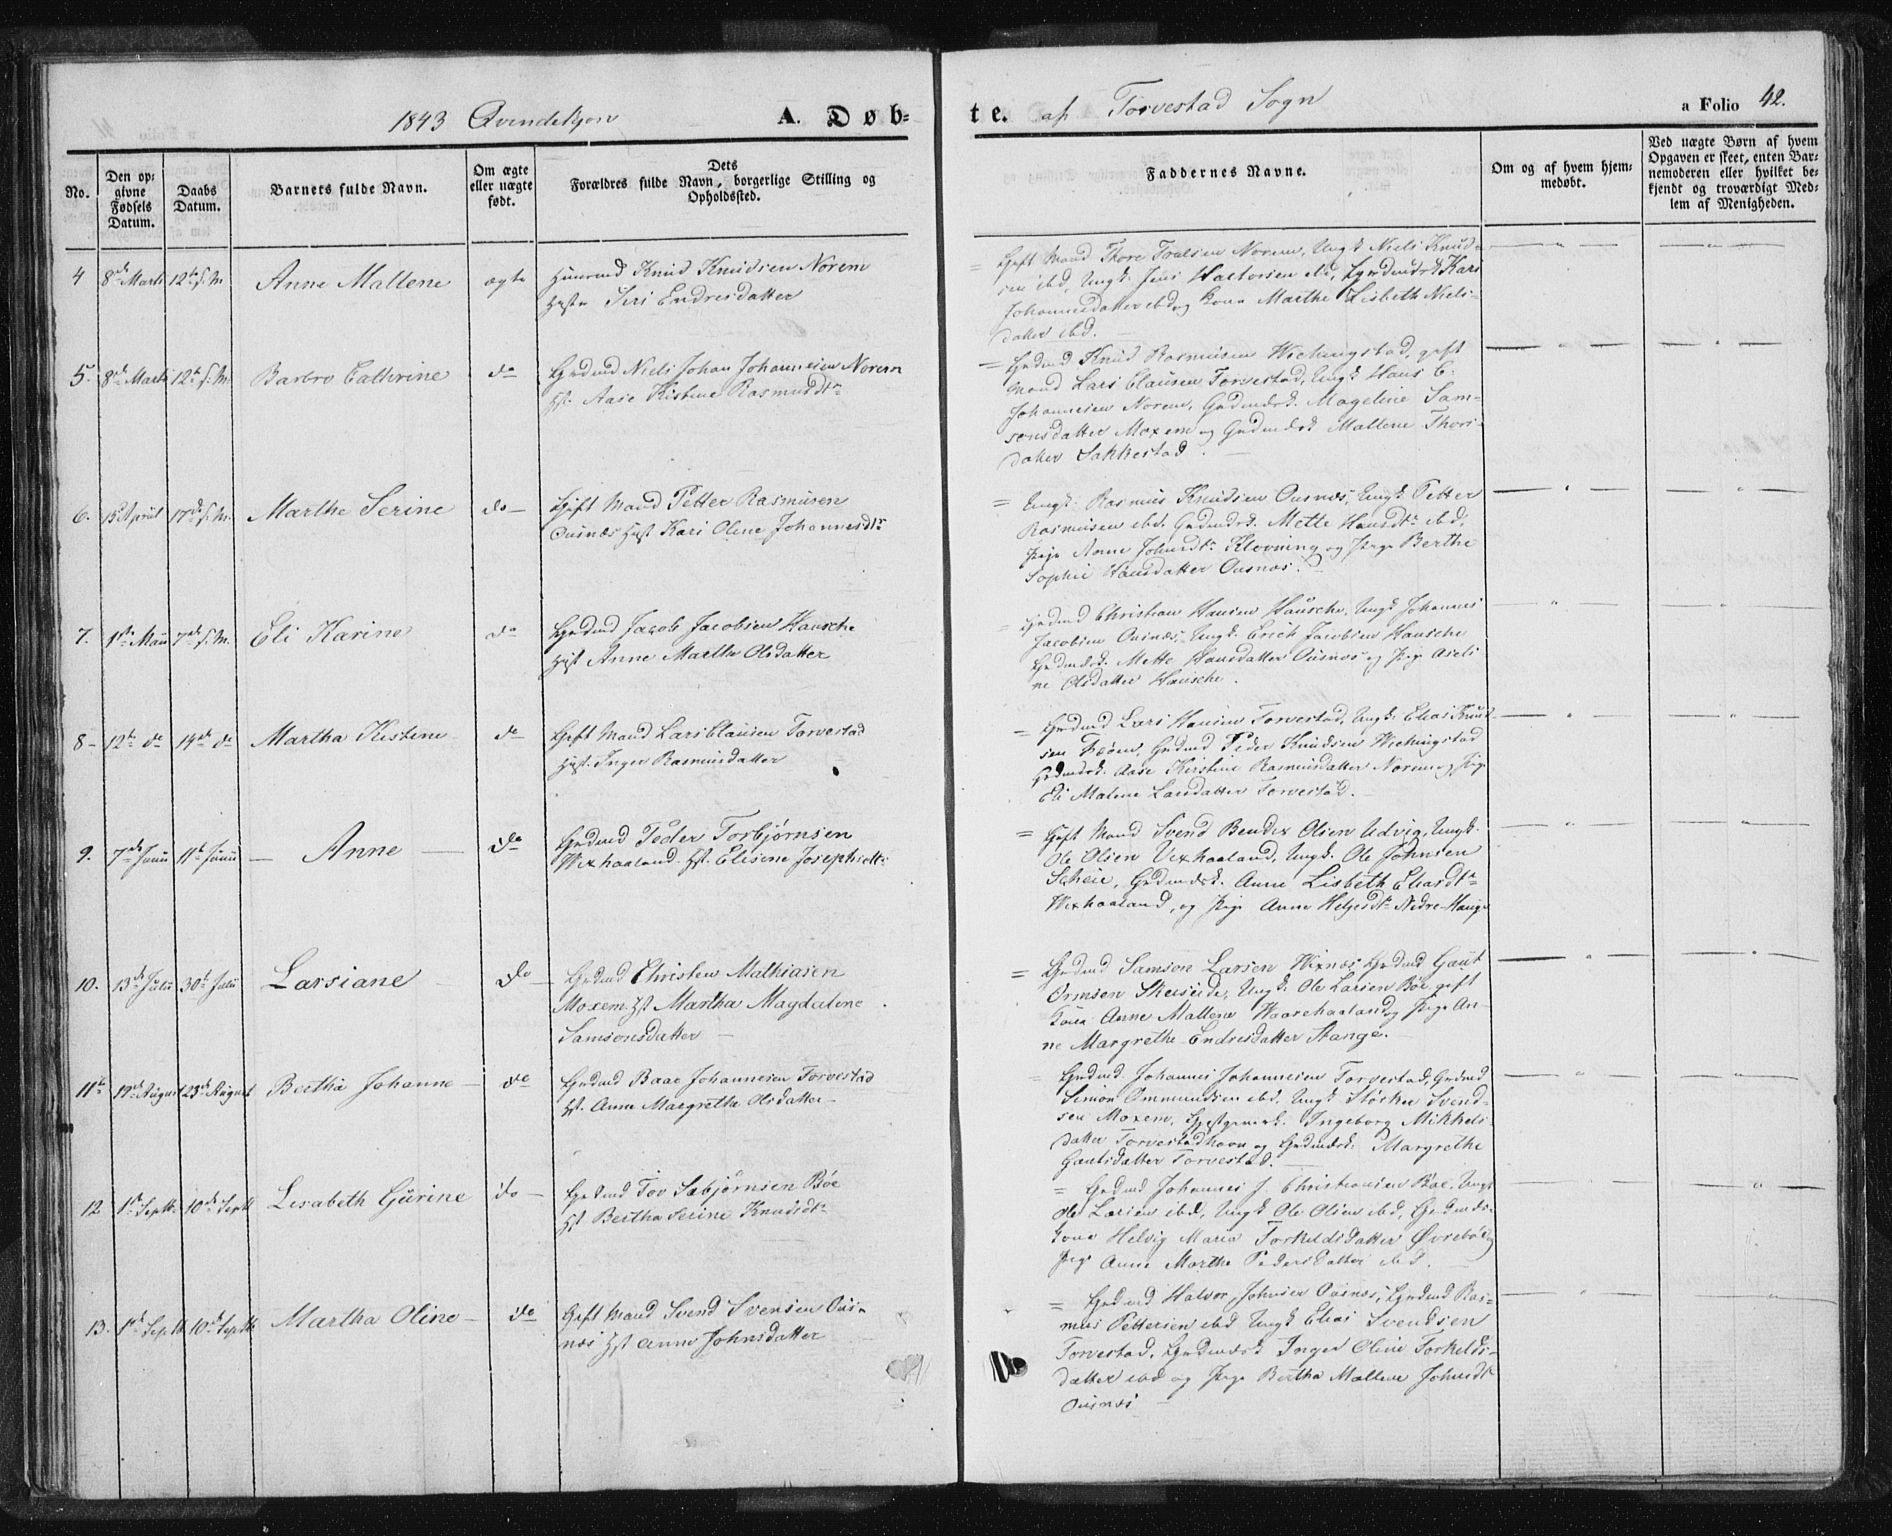 1843 Qvindekjøn
A. Døb-
te. af Torvestad Sogn
a Folio 42.
No.
Den op-
givne
Fødsels
Datum.
Daabs
Datum.
Barnets fulde Navn.
Om ægte
eller uægte
født.
Dets
Forældres fulde Navn, borgerlige Stilling og
Opholdssted.
Faddernes Navne.
Om og af hvem hjem-
medøbt.
Ved uægte Børn af hvem
Opgaven er skeet, enten Bar-
nemoderen eller hvilket be-
kjendt og troværdigt Med-
lem af Menigheden.
4 8de Marts 12te Anne Mallene ægte
Knud Knudsen Norem
Siri Endresdatter
Gift Mand Thore Norem, Ungk Niels Knud-
sen ibd, Ungk. Jens ibd, Kari
Johannesdatter ibd og Kone Marthe Lisbeth Niels-
datter ibd.
5. 8de Marts 12te Barbro Cathrine do
Grdmd Niels Johan Johannesen Norem
Hst. Aase Kistine Rasmusdtr
Grdmd Knud Rasmusen Wichingstad, gift
Mand Lars Clausen Torvestad, Ungk Hans C.
Johannesen Norem, Mageline Sam-
sonsdatter Moxem og Mallene Thors-
datter Sakkestad.
6. 15 April 17de Marthe Serine do
Gift Mand Petter Rasmusen
Ousnæs Hst Kari Oline Johannesdtr
Ungk. Rasmus Knudsen Ousnæs, Ungk Petter
Rasmusen ibd. Mette Hansdtr ibd,
Pige Anne Johnsdtr Klovning og Pige Berthe
Sophie Hansdatter Ousnæs.
7. 1ste Maii 7de Eli Karine do
Grdmd Jacob Jacobsen Hausche
Hst Anne Marthe Olsdatter
Grdmd Christian Hansen Hausche, Ungk Johannes
Jacobsen Ousnæs, Ungk. Erich Jacobsen Hausche
Mette Hansdatter Ousnæs og Pige Aseli-
ne Olsdatter Hausche.
8 12te do 14de do Martha Kistine do
Gift Mand Lars Clausen Torvestad
Hst. Inger Rasmusdatter
Grdmd Lars Hansen Torvestad, Ungk. Elias Knud-
sen Feøen, Grdmd Peder Knudsen Wichingstad
Aase Kirstine Rasmusdatter Norem og Pige
Eli Malene Larsdatter Torvestad.
9. 7de Junii 11te Junii Anne do
Grdmd Peder Torbjørnsen
Wixhaaland. Hst. Elisene Josephsdtr
Gift Mand Svend Bendix Olsen Udvig, Ungk.
Ole Olsen Vixhaaland, Ungk. Ole Johnsen
Scheie, Anne Lisbeth Eliasdtr
Wixhaaland, og Pige Anne Helgesdtr Nedre-Hauge
10. 13de Julii 30te Julii Larsiane do
Grdmd Christen Mathiasen
Moxem Hst Martha Magdalene
Samsonsdatter
Grdmd Samson Larsen Wixnæs Grdmd Gaut
Ormsen Skeiseide, Ungk Ole Larsen Böe gift
Kone Anne Mallene Waarehaaland og Pige An-
ne Margrethe Endresdatter Stange.
11te 17de August 23de August Bertha Johanne do
Grdmd Baae Johannesen Torvestad
Hst. Anne Margretha Olsdatter
Grdmd Johannes Johannesen Torvestad, Grdmd
Simon Ommundsen ibd. Ungk Størker Svend-
sen Moxem, Ingeborg Mikkels-
datter Torvestadhavn og Margrethe
Gautsdatter Torvestad.
12 1ste Septb. 10de Septb Lisabeth Gurine do
Grdmd Tov Sæbjørnsen Böe
Hst Bertha Serine Knudsdtr
Grdmd Johannes J. Christiansen Boe, Ungk
Ole Larsen ibd, Ungk Ole Olsen ibd, Grdmds-
kone Helvig Maria Torkildsdatter Øvrebö og
Pige Anne Marthe Pedersdatter ibd.
13. 1ste Septb 10de Septb Martha Oline do
Gift Mand Svend Svensen Ous-
næs Hst Anne Johnsdatter
Grdmd Halvor Johnsen Ousnæs, Grdmd Ras-
mus Pettersen ibd Ungk Elias Svendsen
Torvestad, Inger Oline Torkilds-
datter ibd og Pige Bertha Mallene Johnsdtr
Ousnæs